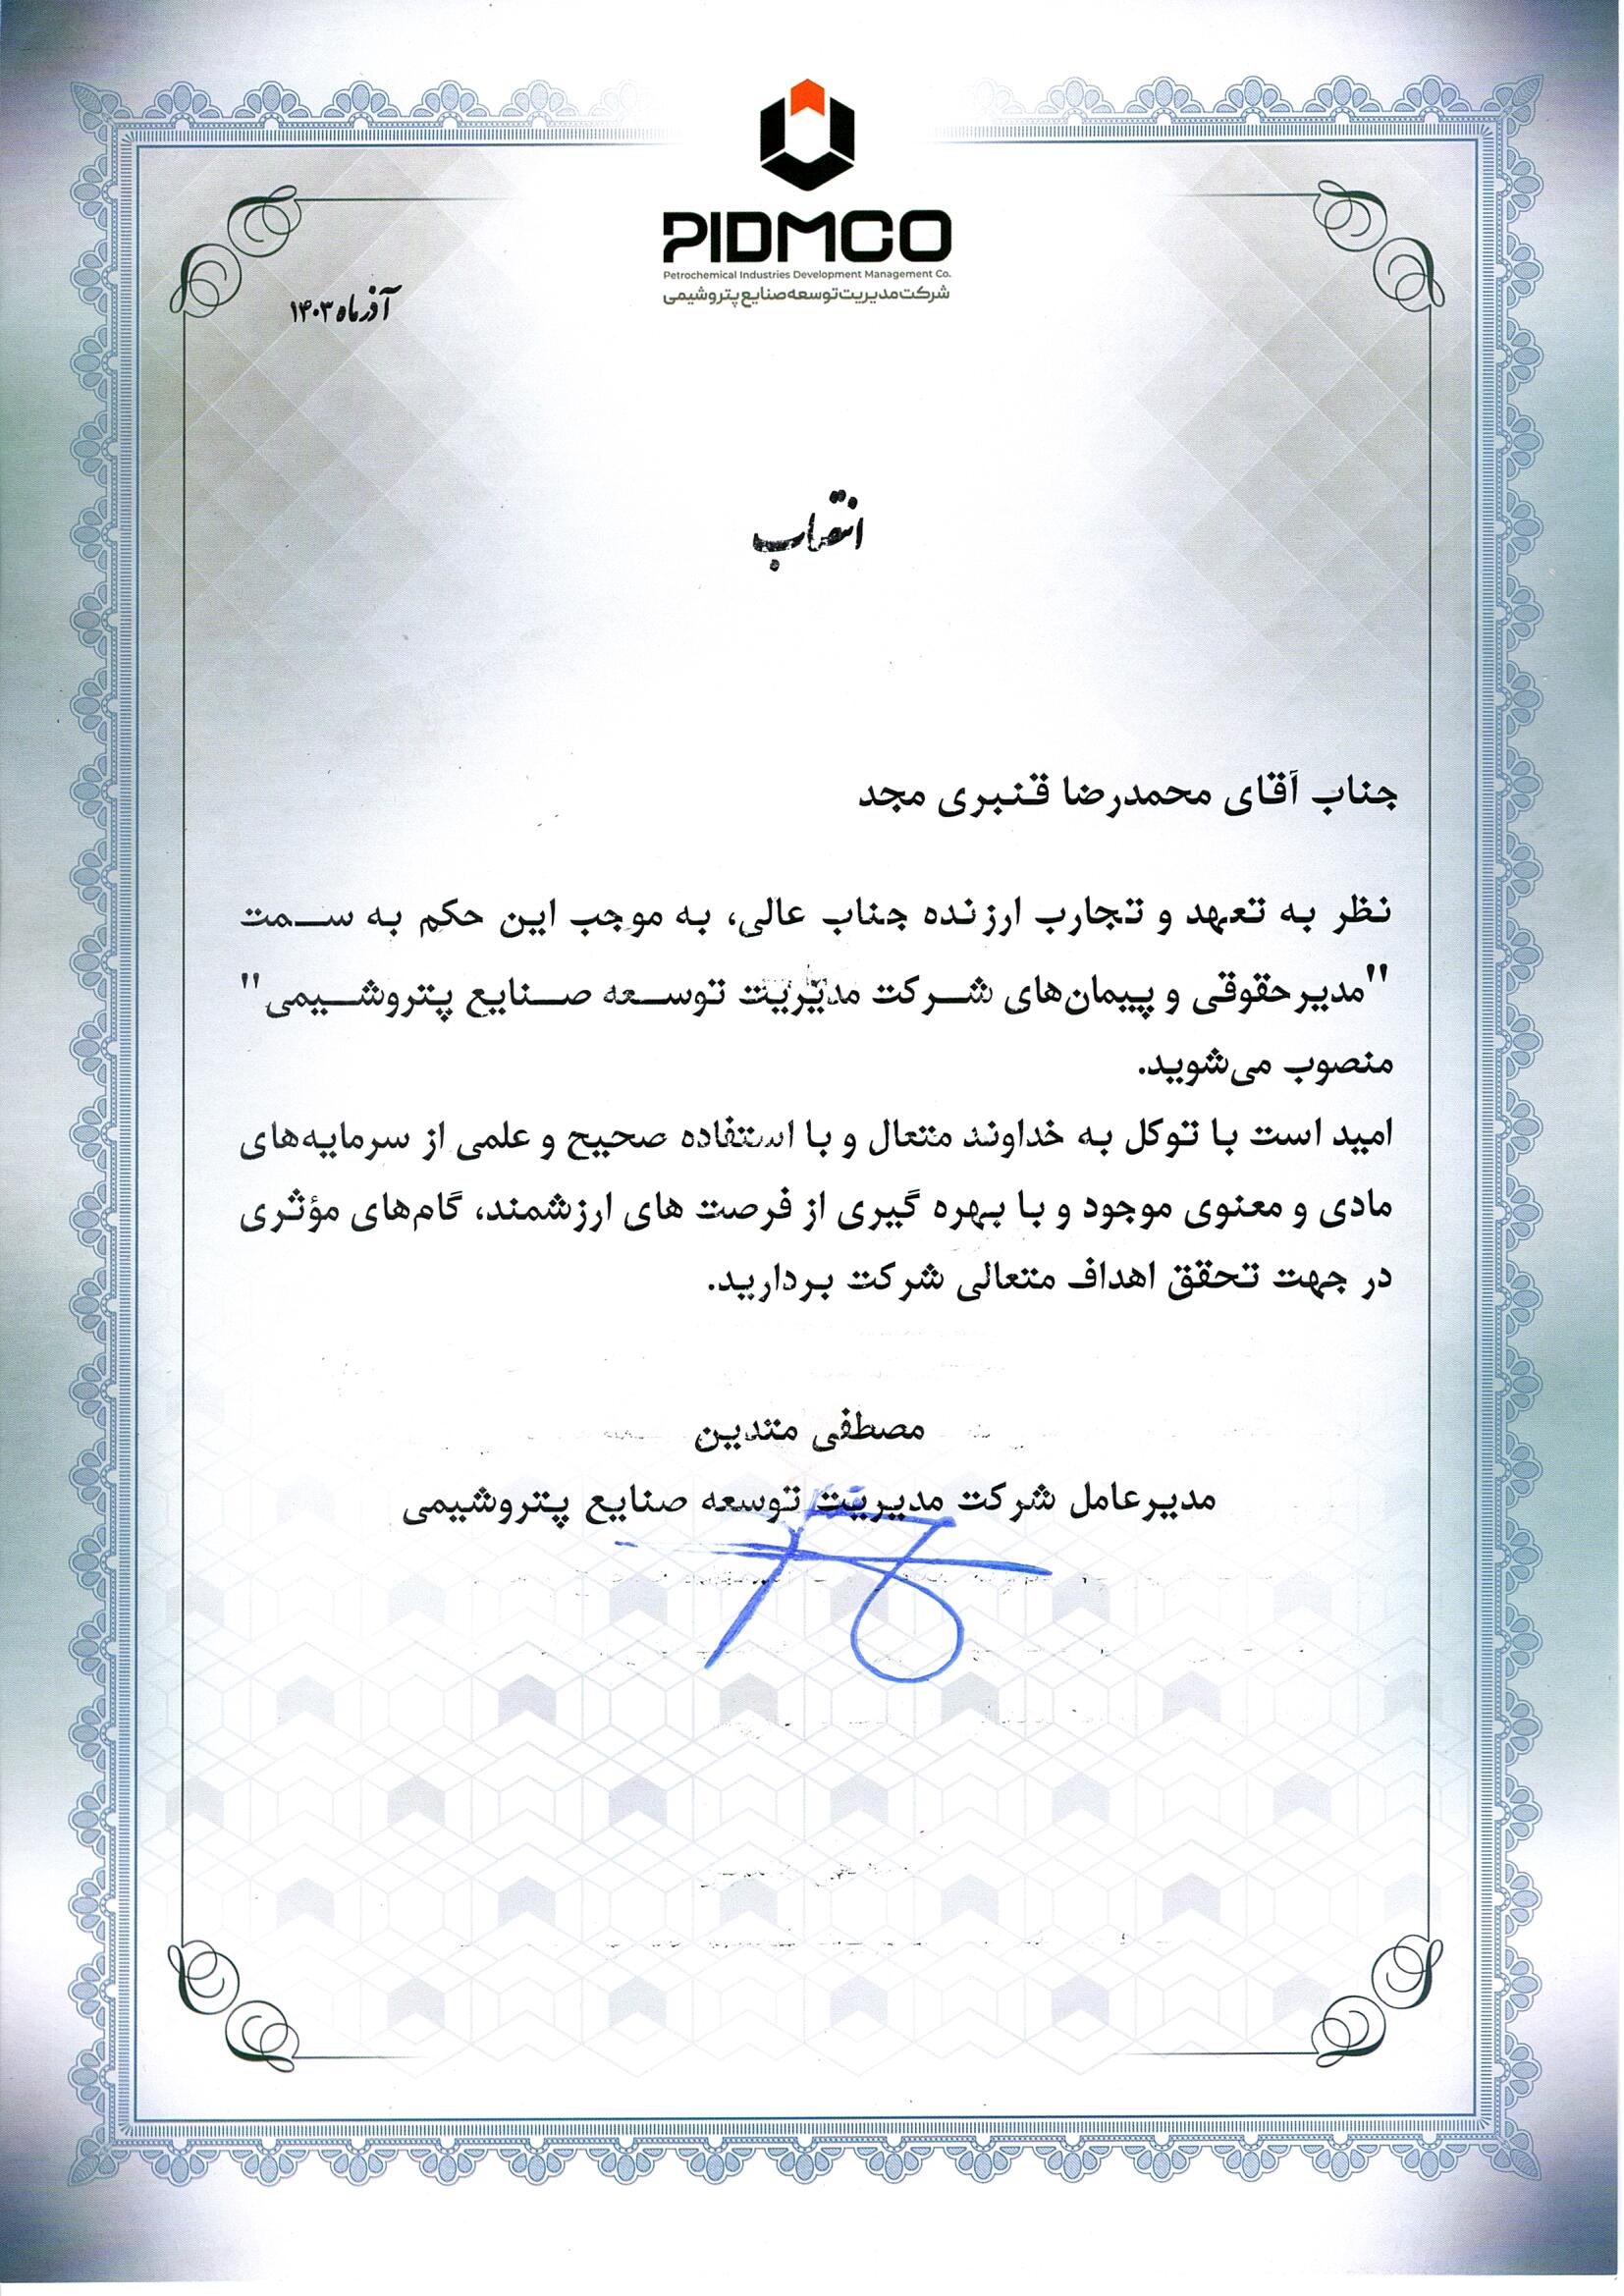 PIDMCO
Petrochemical Industries Development Management Co.
شرکت مدیریت توسعه صنایع پتروشیمی
آذر ماه ۱۴۰۳
انتصاب
جناب آقای محمدرضا قنبری مجد
نظر به تعهد و تجارب ارزنده جناب عالی، به موجب این حکم به سمت
"مدیرحقوقی و پیمان‌های شرکت مدیریت توسعه صنایع پتروشیمی"
منصوب می‌شوید.
امید است با توکل به خداوند متعال و با استفاده صحیح و علمی از سرمایه‌های
مادی و معنوی موجود و با بهره گیری از فرصت های ارزشمند، گام‌های مؤثری
در جهت تحقق اهداف متعالی شرکت بردارید.
مصطفی متدین
مدیرعامل شرکت مدیریت توسعه صنایع پتروشیمی